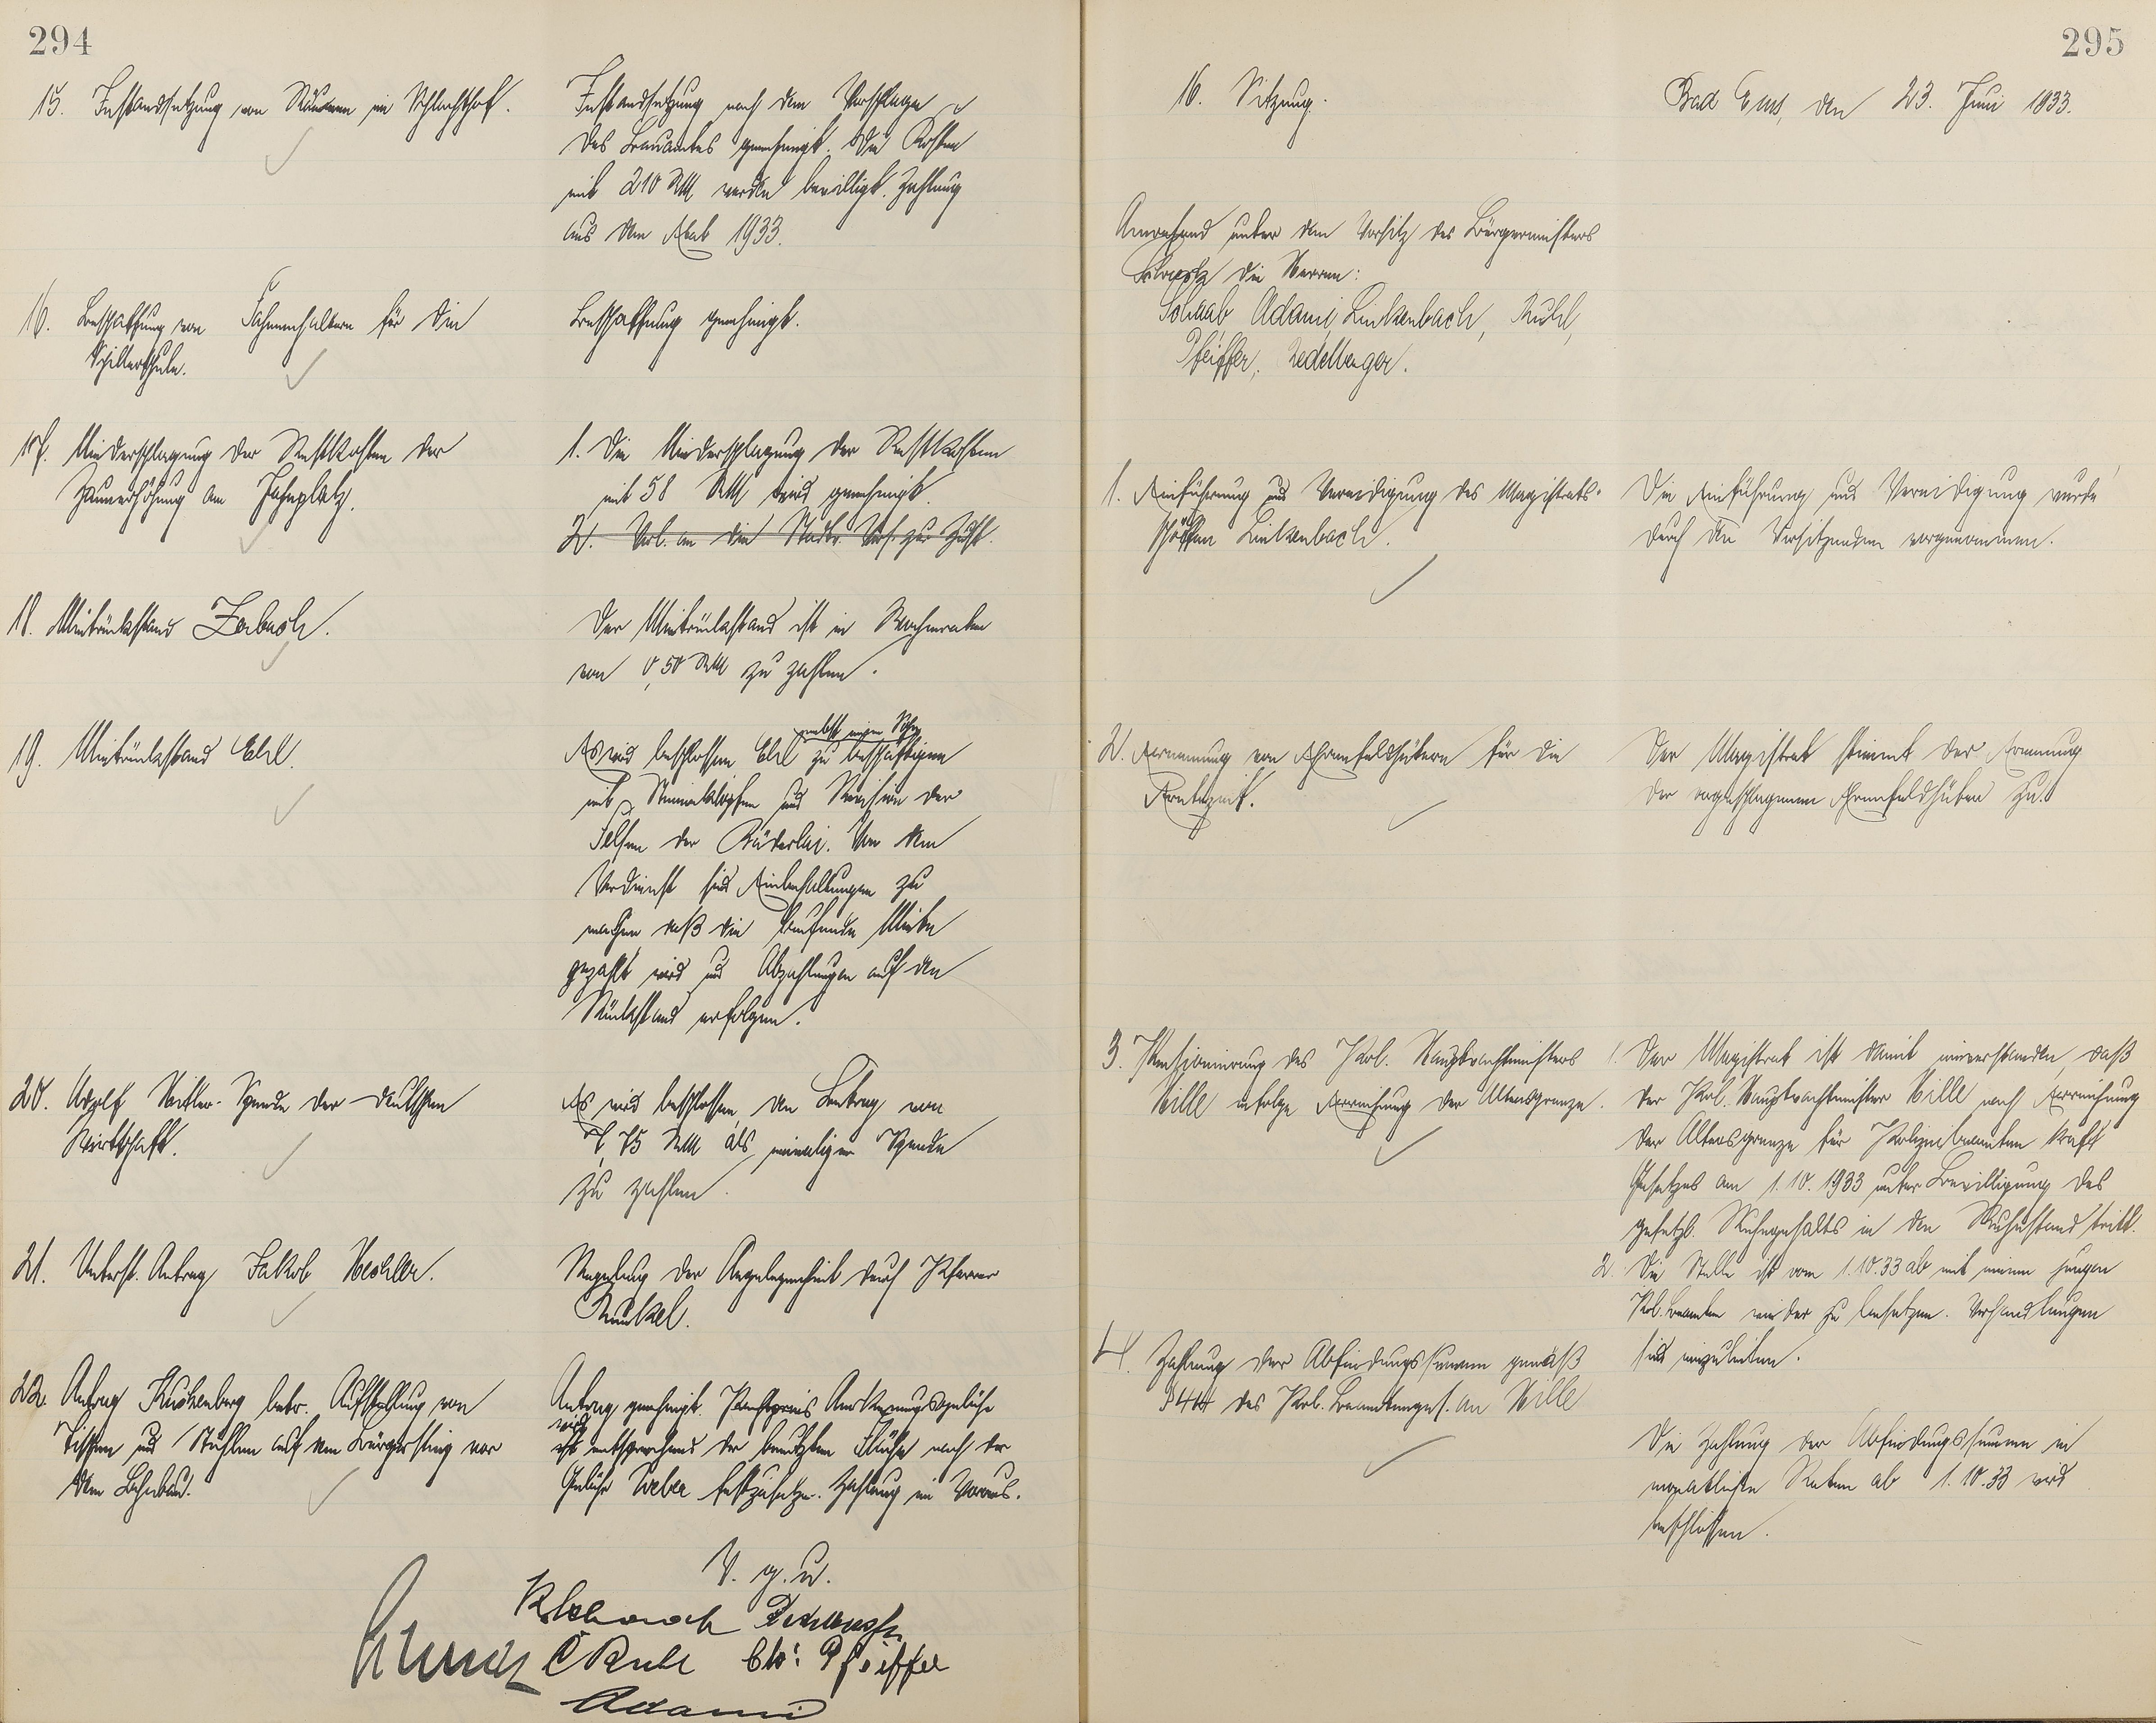 294
15. Instandsetzung von Räumen im Schlachthof.
Instandsetzung nach dem Vorschlage
des Bauamtes genehmigt. Die Kosten
mit 210 RM werden bewilligt. Zahlung
aus dem Etat 1933.
16. Beschaffung von Fahnenhaltern für die
Schillerschule.
Beschaffung genehmigt.
17. Niederschlagung der Restkosten der
Zaunerhöhung am Jahnplatz.
1. Die Niederschlagung der Restkosten
mit 58 RM wird genehmigt.
2. Vorl. an die Stadtv. Vers. zur Zust.
18. Mietrückstand Zerbach.
Der Mietrückstand ist in Wochenraten
von 0,50 RM zu zahlen.
19. Mietrückstand Ehl.
nebst einen Sohn
Es wird beschlossen Ehl zu beschäftigen
mit Steineklopfen und Revision der
Felsen der Bäderlei. Von dem
Verdienst sind Einbehaltungen zu
machen daß die laufende Miete
gezahlt wird und Abzahlungen auf den
Rückstand erfolgen.
20. Adolf Hitler-Spende der deutschen
Wirtschaft.
Es wird beschlossen, den Betrag von
7,75 RM als einmalige Spende
zu zahlen.
21. Unterst. Antrag Jakob Hechler.
Regelung der Angelegenheit durch Pfarrer
Runkel.
22. Antrag Kuckenberg betr. Aufstellung von
Tischen und Stühlen auf dem Bürgersteig vor
dem
Antrag genehmigt. Anerkennungsgebühr
wird
ist entsprechend der benutzten Fläche nach der
Gebühr Weber festzusetzen. Zahlung im Voraus.
V. g. u.
C Ruhl Chr: Pfeiffer
Adami
295
16. Sitzung.
Bad Ems, den 23. Juni 1933.
Anwesend unter dem Vorsitz des Bürgermeisters
die Herren:
Schaab Adami, Linkenbach, Ruhl,
Pfeiffer, Redelberger.
1. Einführung und Vereidigung des Magistrats-
schöffen Linkenbach.
Die Einführung und Vereidigung wurde
durch den Vorsitzenden vorgenommen.
2. Ernennung von Ehrenfeldhütern für die
Erntezeit.
Der Magistrat stimmt der Ernennung
der vorgeschlagenen Ehrenfeldhüter zu.
3. Pensionierung des Pol. Hauptwachtmeisters
Hille infolge Erreichung der Altersgrenze.
1. Der Magistrat ist damit einverstanden, daß
der Pol. Hauptwachtmeister Hille nach Erreichung
der Altersgrenze für Polizeibeamten kraft
Gesetzes am 1.10.1933 unter Bewilligung des
gesetzl. Ruhegehalts in den Ruhestand tritt.
2. Die Stelle ist vom 1.10.33 ab mit einem jungen
Pol. Beamten wieder zu besetzen. Verhandlungen
sind einzuleiten.
4. Zahlung der Abfindungssumme gemäß
§ 44 des Pol. Beamtenges. an Hille
Die Zahlung der Abfindungssumme in
monatlichen Raten ab 1.10.33 wird
beschlossen.